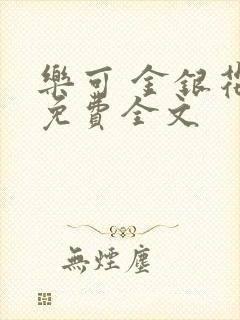 樂可 金銀花
免費全文
無煙塵